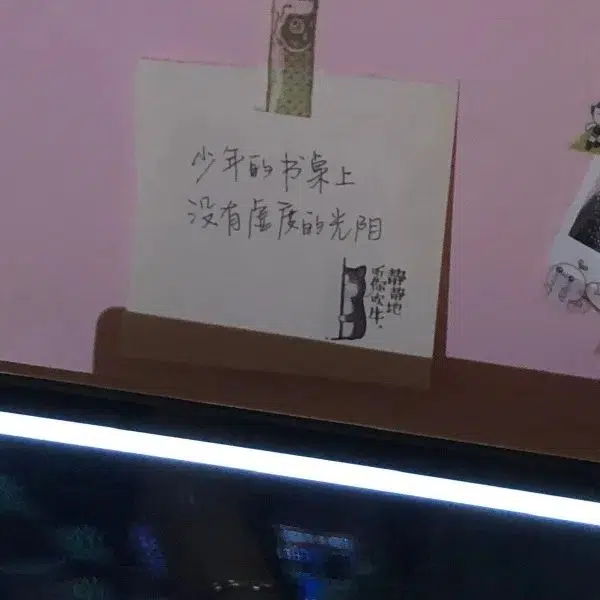 少年的书桌上
没有虚度的光阴
静静地
听你吹牛.